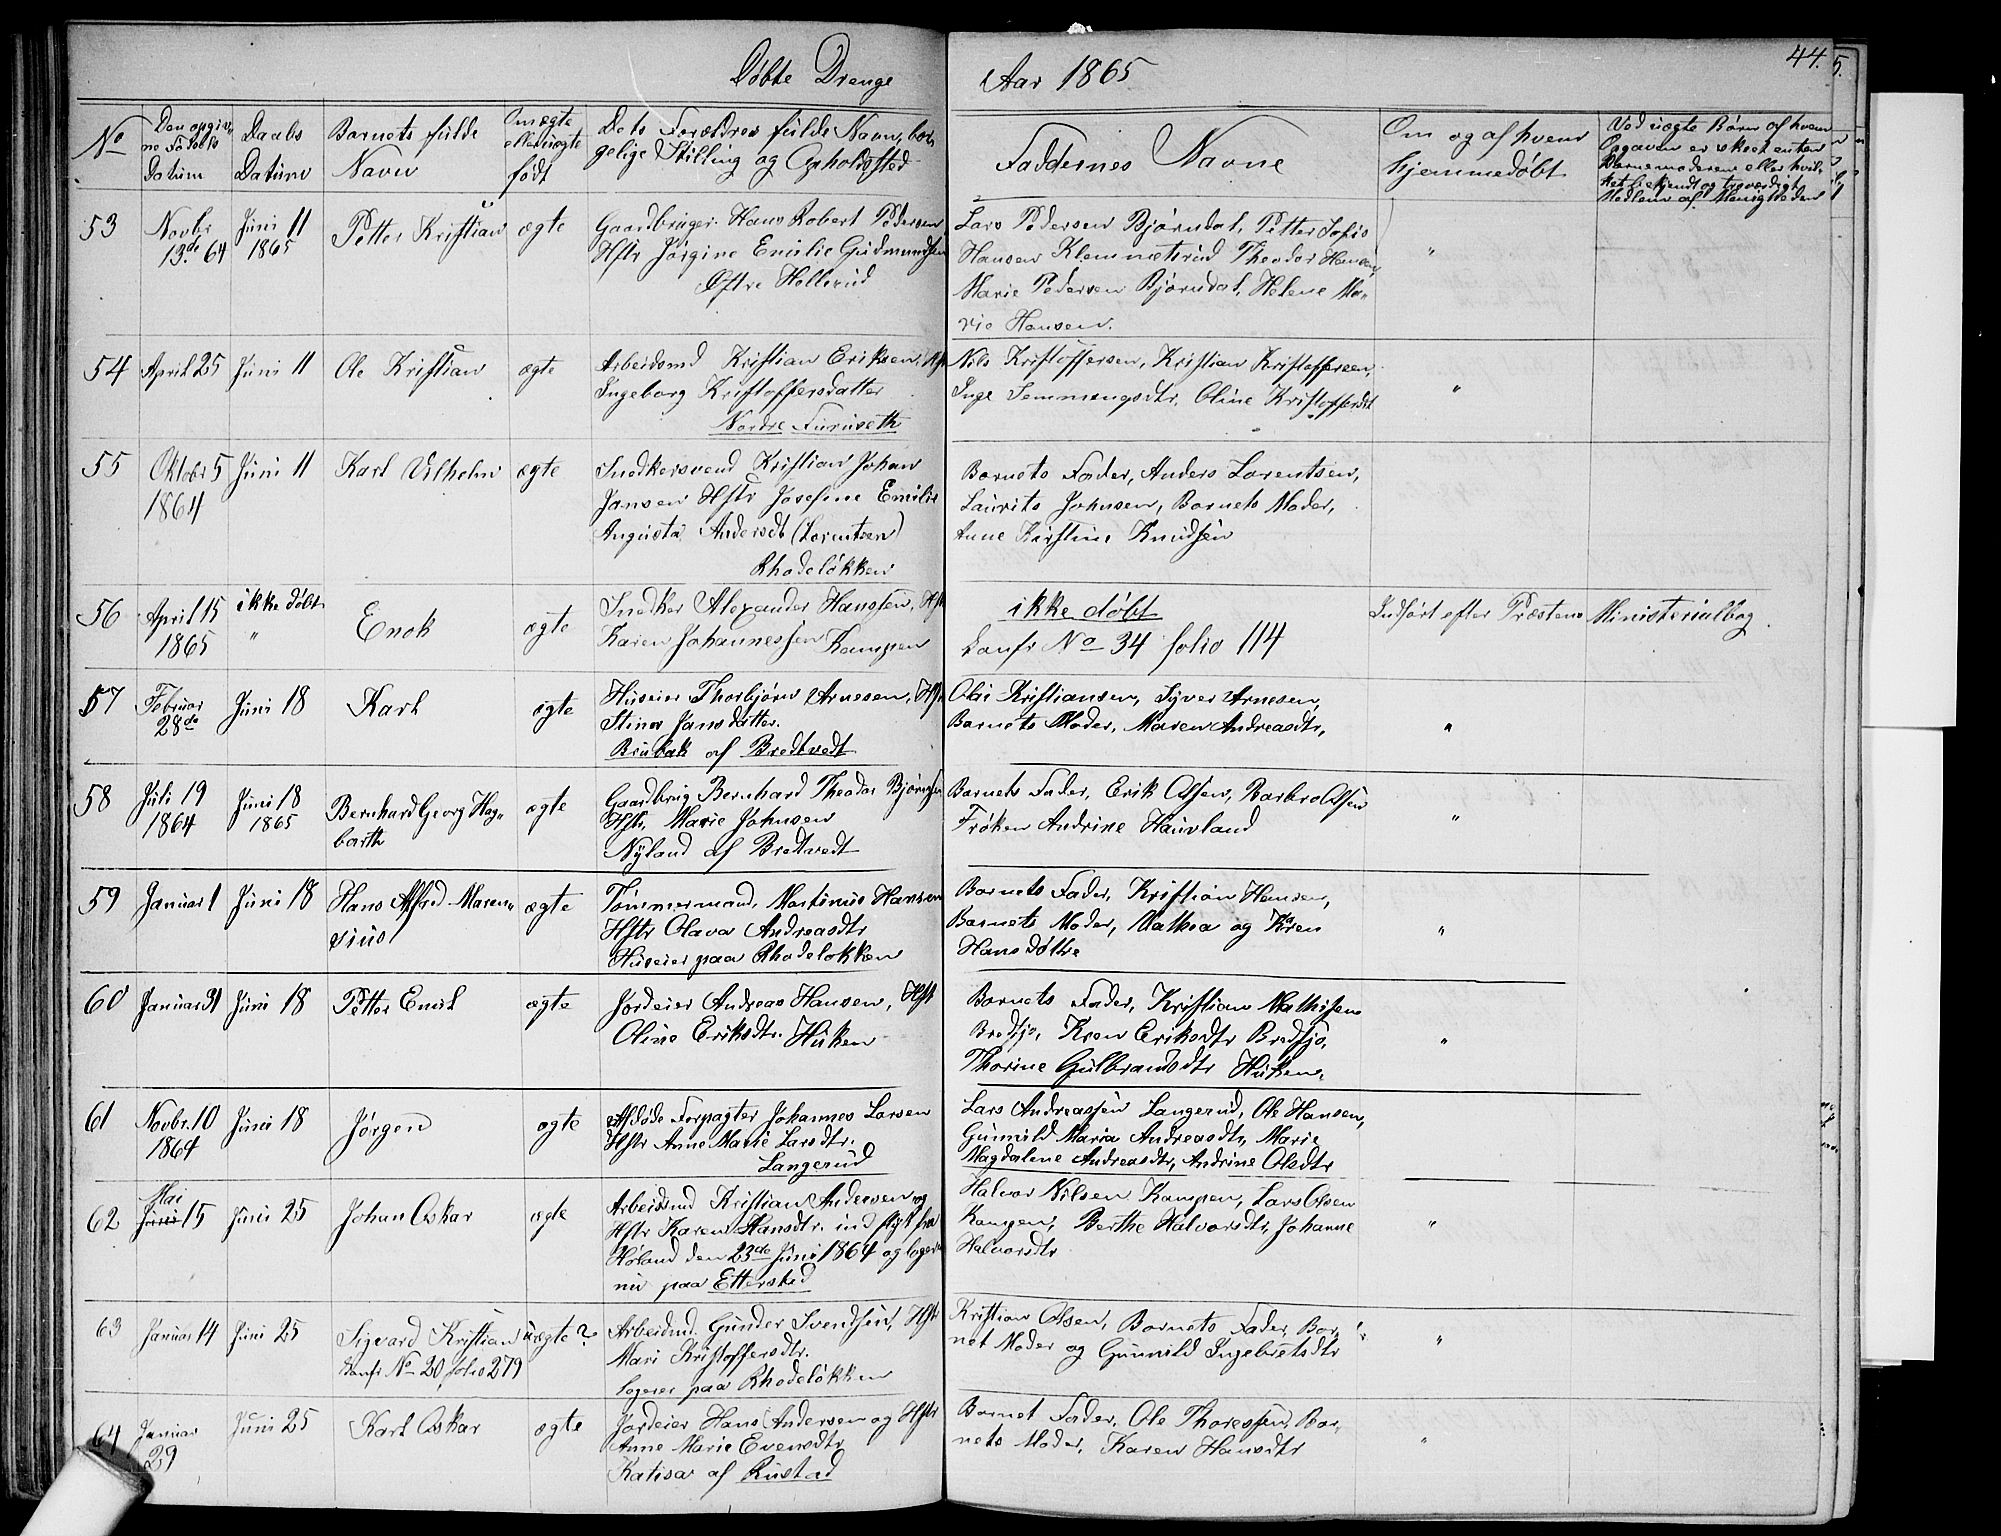 Døbte Drenge
Aar 1865
44.
5.
No
Den opgivne Fødsels Datum
Daabs Datum
Barnets fulde Navn
Om ægte eller uægte født
Dets Forældres fulde Navn, borgelige Stilling og Opholdssted
Faddernes Navne
Om og af hvem hjemmedøbt
Ved uægte Børn af hvem Opgaven er skeet enten Barnemoderen eller
Medlem af Menigheden
53
Novbr 13de 64
Juni 11 1865
Petter Kristian
ægte
Gaardbruger Hans Robert Pedersen
Hstr Jørgine Emilie Gudmundsen
Østre Hellerud
Lars Pedersen Bjørndal, Petter
Hansen Klemmetsrud Theodor Hansen
Marie Pedersen Bjørndal, Helene Ma-
rie Hansen.
"
54
April 25
Juni 11
Ole Kristian
ægte
Arbeidsmd Kristian Eriksen, Hst
Ingeborg Kristoffersdatter
Nordre Furuseth
Nils Kristoffersen, Kristian Kristoffersen,
Inge Semmengsdtr. Oline Kristoffersdt
"
55
Oktober 5 1864
Juni 11
Karl Vilhelm
ægte
Snedkersvend Kristian Johan
Jansen Hstr Josefine Emilie
Augusta Andersdt (Lorentsen)
Rhodeløkken
Barnets Fader, Anders Lorentsen,
Laurits Johnsen, Barnets Moder,
Anne Kirstine Knudsen
56
April 15 1865
ikke døbt
"
Enok
ægte
Snedker Alexander Hanssen, Hst
Karen Johannessen Kampen
ikke døbt
Confr No 34 folio 114
Indført efter Præstens Ministerialbog.
57
Februar 28de
Juni 18
Karl
ægte
Huseier Thorbjørn Arnesen, Hst
Stina Jansdatter.
Brubak af Bredtvedt
Olai Kristiansen, Syver Arnesen,
Barnets Moder, Maren Andreasdtr,
"
58
Juli 19 1864
Juni 18 1865
Bernhard Georg Hag-
barth
ægte
Gaardbrug Bernhard Theodor Bjørnsen
Hstr, Marie Johnsen
Nyland af Bredtvedt
Barnets Fader, Erik Olsen, Barbro Olsen
Frøken Andrine Hauvland
"
59
Januar 1
Juni 18
Hans Alfred Maren-
sius
ægte
Tømmermand, Martinus Hansen
Hstr Olava Andreasdtr
Huseier paa Rhodeløkken
Barnets Fader, Kristian Hansen,
Barnets Moder, Mathea og Karen
Hansdøttre
"
60
Januar 31
Juni 18
Petter Emil
ægte
Jordeier Andreas Hansen, Hstr
Oline Eriksdtr. Huken
Barnets Fader, Kristian Mathisen
Bredsjø, Karen Eriksdtr Bredsjø,
Thorine Gulbrandsdtr Huken.
"
61
Novbr. 10 1864
Juni 18
Jørgen
ægte
Afdøde Forpagter Johannes Larsen
Hstr Anne Marie Larsdtr.
Langerud
Lars Andreassen Langerud, Ole Hansen,
Gunnild Maria Andreasdtr, Marie
Magdalene Andreasdtr, Andrine Olsdtr
62
Mai
Juni 15
Juni 25
Johan Oskar
ægte
Arbeidsmd Kristian Andersen og
Hstr Karen Hansdtr. indflyt fra
Høland den 23de Juni 1864 og logerer
nu paa Etterstad
Halvor Nilsen Kampen, Lars Olsen
Kampen, Berthe Halvorsdtr, Johanne
Halvorsdtr
"
63
Januar 14
Juni 25
Sigvard Kristian
Confr No 20 folio 279
uægte?
Arbeidmd. Gunder Svendsen, Hstr
Mari Kristoffersdtr.
logerer paa Rhodeløkken
Kristian Olsen, Barnets Fader, Bar-
net Moder og Gunnild Ingebretsdtr
"
64
Januar 29
Juni 25
Karl Oskar
ægte
Jordeier Hans Andersen og Hstr
Anne Marie Evensdtr
Katisa af Rustad
Barnet Fader, Ole Thoressen, Bar-
nets Moder, Karen Hansdtr
"